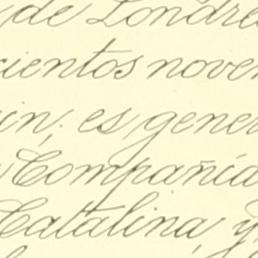 de Londres
cientos noven
in; es gener
Compañía
Catalina, y